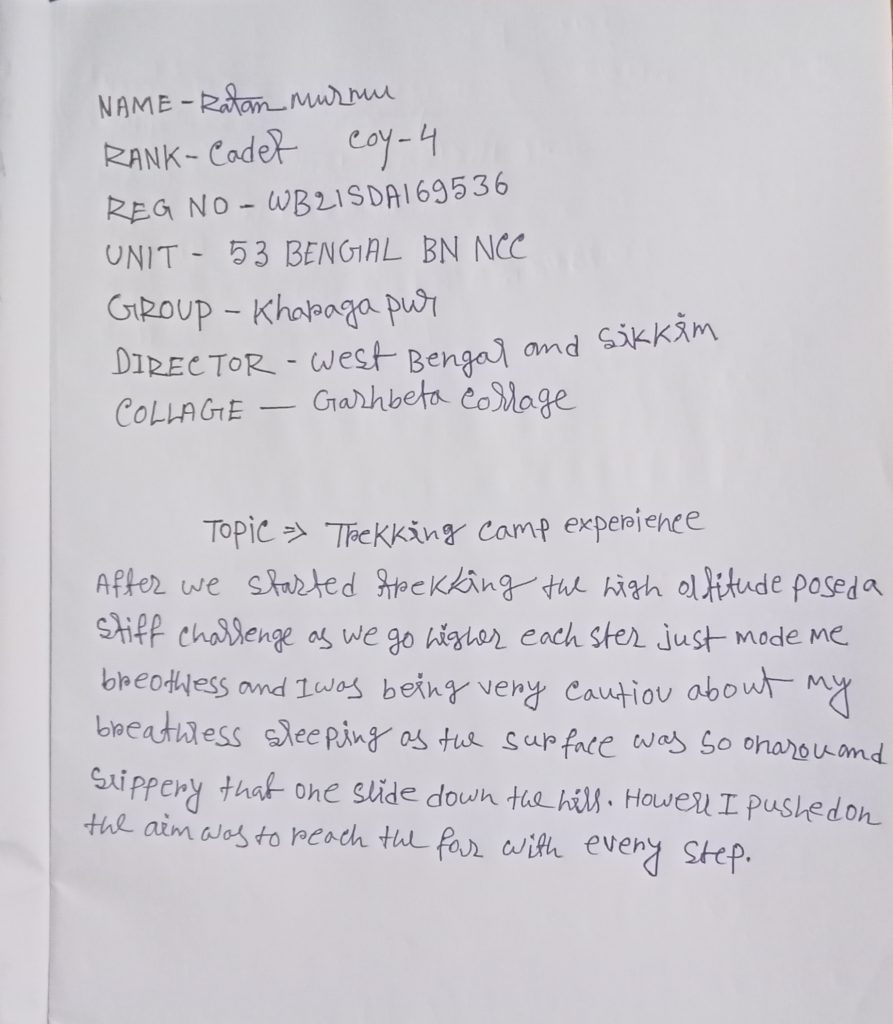 NAME - Ratan murmu
RANK - Cadet coy-4
REG NO - WB21SDA169536
UNIT - 53 BENGAL BN NCC
GROUP - Kharagapur
DIRECTOR - west Bengal and Sikkim
COLLAGE - Garhbeta Collage
Topic ⇒ Trekking camp experience
After we started trekking the high altitude posed a
stiff challenge as we go higher each ster just mode me
breothless and I was being very Cautiou about my
breathless sleeping as the surface was so and
slippery that one slide down the hill. Howell I pushed on
the aim was to reach the for with every step.